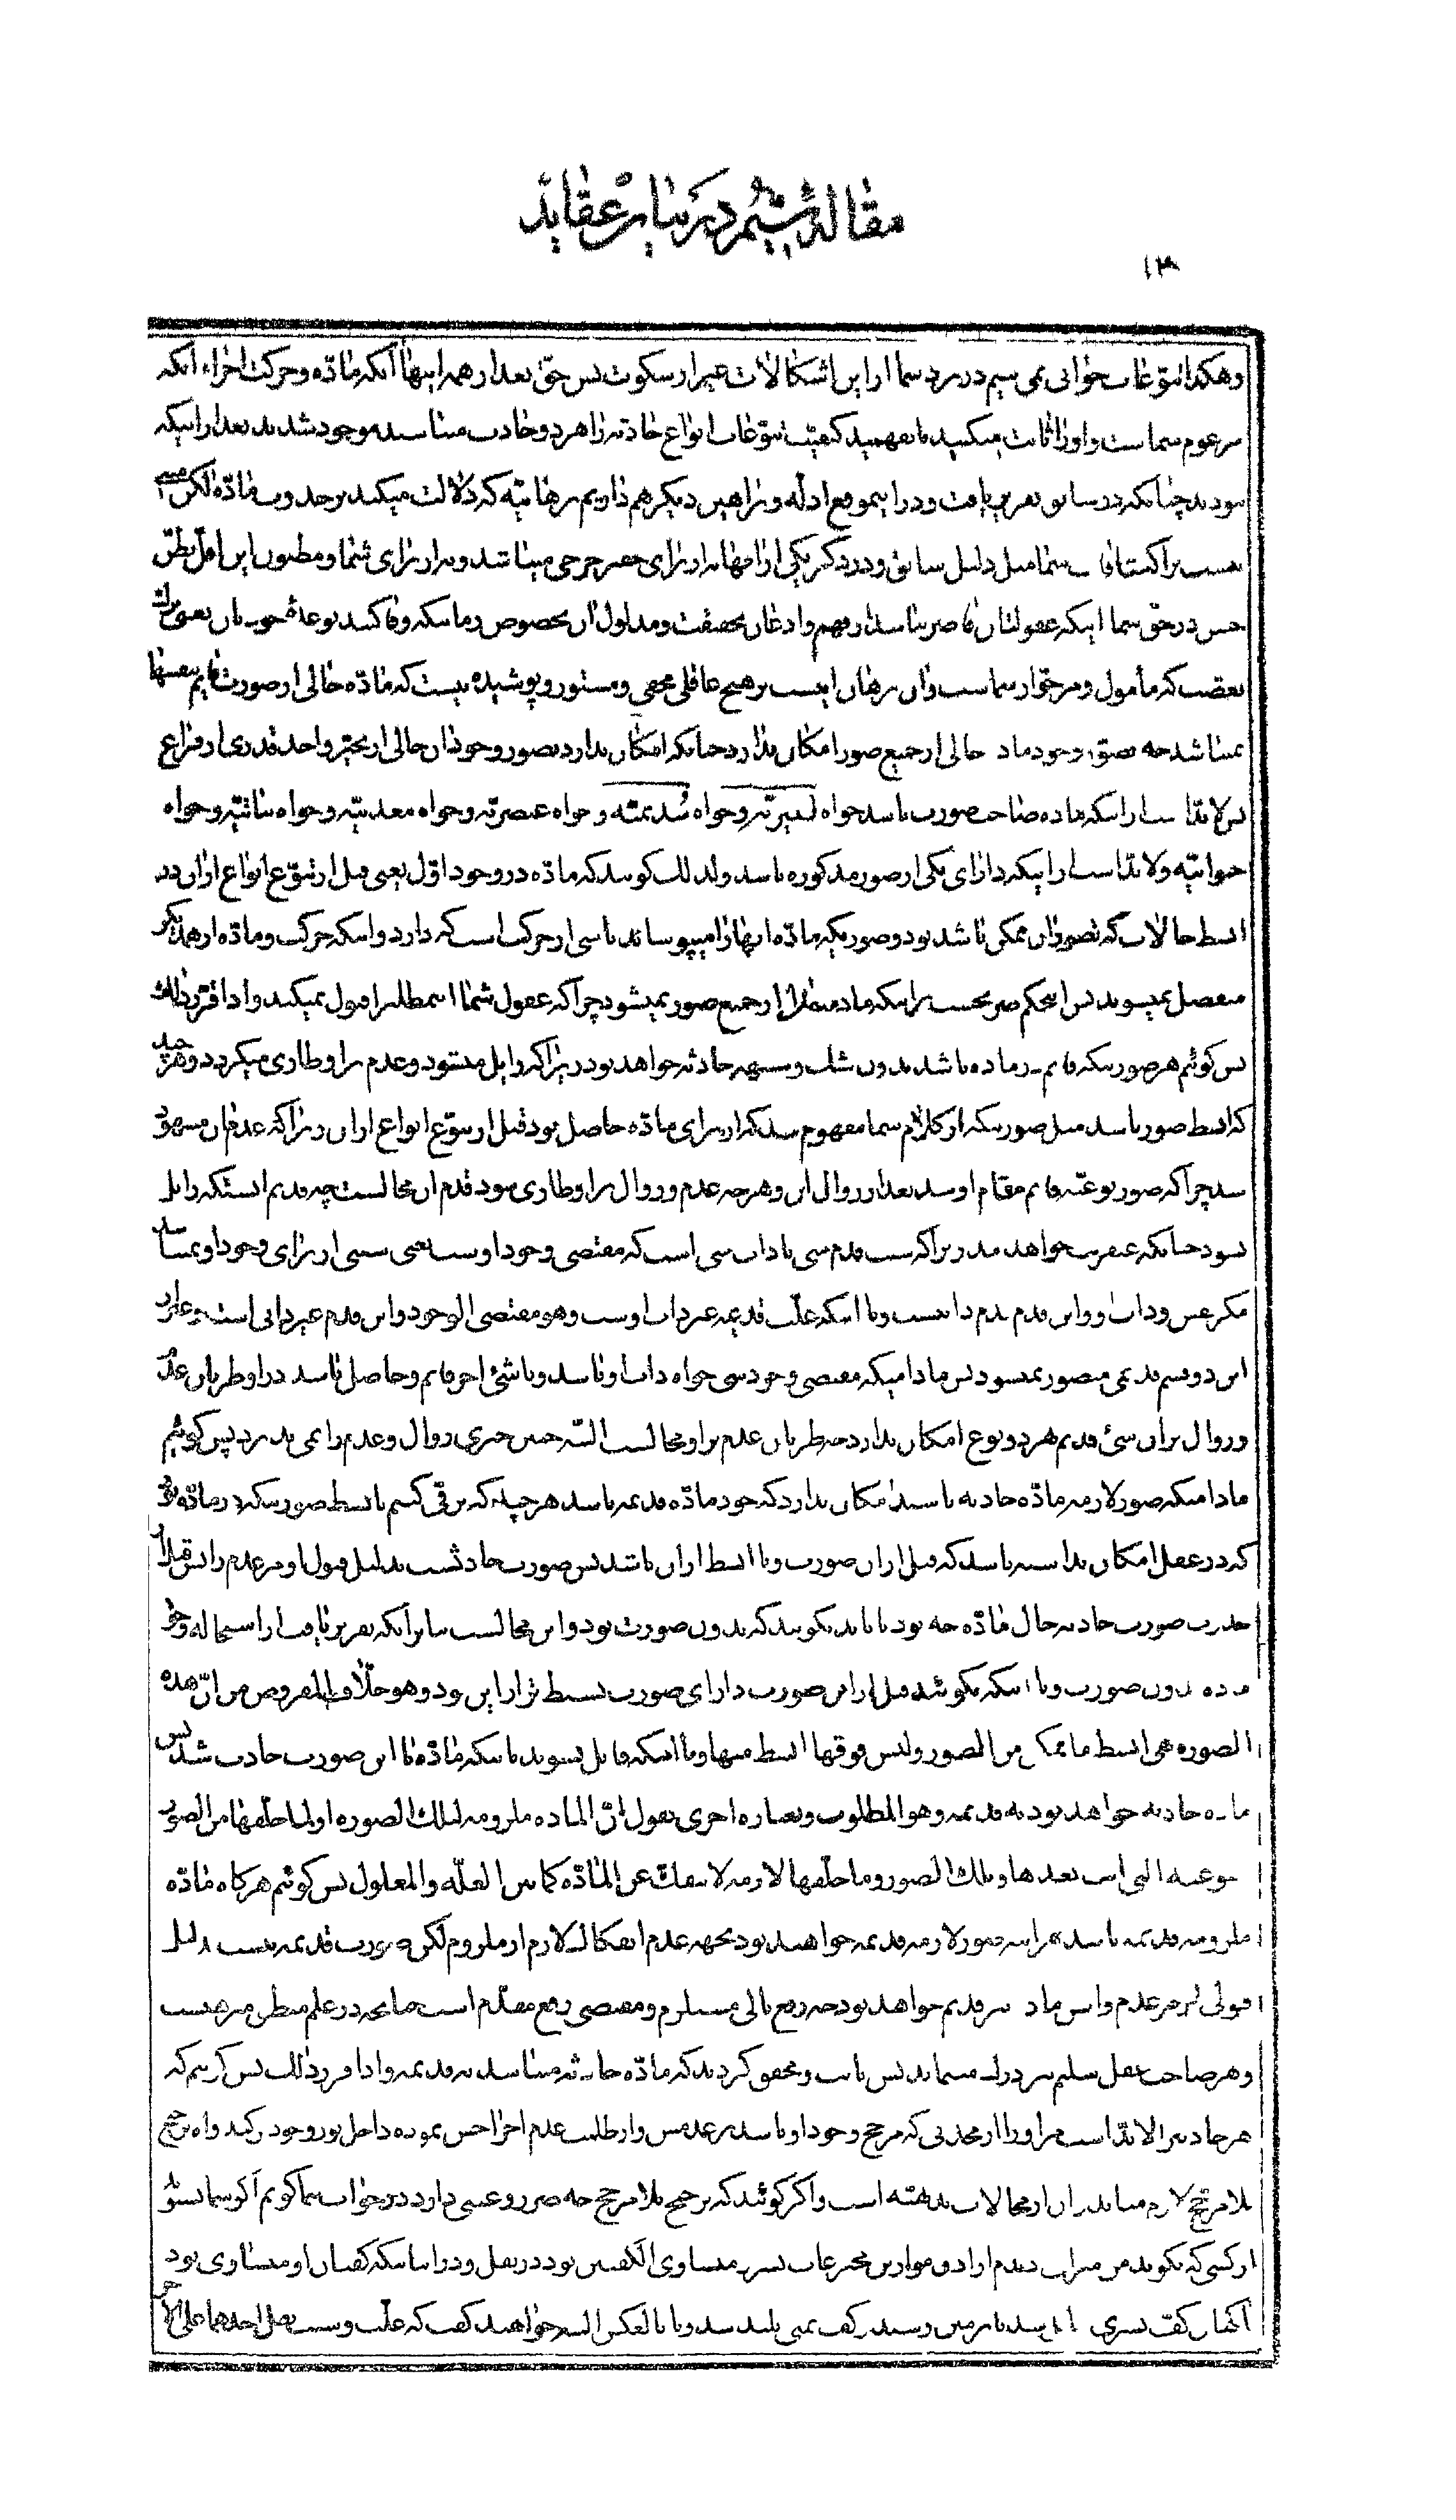 مقاله ششم در سایر عقاید
۱۳
وهکذا تنوّعات حیوانی نمی بینیم در نزد شما از این اشکالات غیر از سکوت پس حتی بعد از همه اینها آنکه مادّه وحرکت اجزاء آنکه
مزعوم شماست واورا ثابت میکنید تا بفهمید کیفیت تنوّعات انواع حادثه را هر دو حادث میباشند موجود شدند بعد از اینکه
نبودند چنانکه در سابق تقریر یافت ودر اینموقع ادلّه وبراهین دیگر هم داریم برهانیّه که دلالت میکند بر حدوث مادّه لکن
نیست برای کتاب شما مثل دلیل سابق ودر ذکر یکی از آنها
خس در حقّ شما اینکه عقولتان قاصر نباشد از فهم واذعان بحقیقت ومدلول آن بخصوص زمانیکه
تعصّب که مأمول ومرجوّ از شماست وآن برهان اینست بر هیچ عاقلی مخفی ومستور وپوشیده نیست که مادّه خالی از صورت قایم بنفسها
نمیباشد چه تصوّر وجود ماده خالی از جمیع صور امکان ندارد چنانکه امکان ندارد تصوّر وجود آن خالی از تحیّز واحد قدری از فراغ
پس لابدّ است از اینکه ماده صاحب صورت باشد خواه اثیریّه وخواه سُدیمیّه وخواه عنصریّه وخواه معدنیّه وخواه نباتیّه وخواه
حیوانیّه ولابدّ است از اینکه دارای یکی از صور مذکوره باشد ولذلک گویند که مادّه در وجود اوّل یعنی قبل از تنوّع انواع از آن در
ابسط حالات که تصوّر آن ممکن باشد بود وصوریکه مادّه آنها را میپوشاند ناشی از حرکت است که دارد واینکه حرکت ومادّه از همدیگر
منفصل نمیشوند پس این حکم صریحست براینکه ماده منفکّ از جمیع صور نمیشود چرا که عقول شما این مطلب را قبول نمیکند واذا تقرّر ذلک
پس گوئیم هر صورتیکه قایم بر ماده باشد بدون شک وشبهه حادثه خواهد بود زیرا که زایل میشود وعدم بر او طاری میگردد وهر چند
که ابسط صور باشد مثل صورتیکه از کلام شما مفهوم شد که از برای مادّه حاصل بود قبل از تنوّع انواع از آن زیرا که عدم آن مشهود
شد چرا که صور نوعیّه قایم مقام او شد بعد از زوال آن وهر چه عدم وزوال بر او طاری شود قدم آن محالست چه قدیم آنستکه زایل
نشود چنانکه عنقریب خواهد آمد زیرا که سبب قدم شیء یا ذات شیء است که مقتضی وجود اوست
مگر عین وذات او واین قدم قدم ذاتیست ویا اینکه علّت قدیمه غیر ذات اوست وهو مقتضی الوجود واین قدم غیر ذاتی است
این دو قسم قدیمی متصوّر نمیشود پس مادامیکه مقتضی وجود شیء خواه ذات او باشد ویا شیء آخر قایم وحاصل باشد در او طریان عدم
وزوال بر آن شیء قدیم هر دو نوع امکان ندارد چه طریان عدم بر او محالست البتّه چنین چیزی زوال وعدم را نمی پذیرد پس گوئیم
مادامیکه صور لازمه مادّه حادثه باشند امکان ندارد که خود مادّه قدیمه باشد هر چند که ترقّی کنیم بابسط صورتیکه در مادّه بود
که در عقل امکان نداشته باشد که قبل از آن صورت ویا ابسط از آن باشد پس صورت حادثست بدلیل قبول او مر عدم را
حدوث صورت حادثه حال مادّه چه بود یا باید بگویند که بدون صورت بود واین محالست بنابر آنکه تقریر یافت از استحاله وجود
ماده بدون صورت ویا اینکه بگویند قبل از این صورت دارای صورت بسیط تر از این بود وهو خلاف المفروض من انّ هذه
الصوره هی ابسط ما یمکن من الصور ولیس فوقها ابسط منها ویا اینکه قایل بشوند باینکه مادّه با این صورت حادث شد پس
ماده حادثه خواهد بود نه قدیمه وهو المطلوب وبعباره اخری نقول انّ الماده ملزومه لتلک الصوره او لما خلفها من الصور
نوعیه التی اتت بعدها وتلک الصور وما خلفها لازمه لا تنفکّ عن المادّه کما بین العلّه والمعلول پس گوئیم هر گاه مادّه
ملزومه قدیمه باشد هر آینه صور لازمه قدیمه خواهند بود بجهه عدم انفکاک لازم از ملزوم لکن صورت قدیمه نیست بدلیل
قبولی او مر عدم را پس ماده نیز قدیم نخواهد بود چه رفع تالی مستلزم ومقتضی رفع مقدّم است چنانچه در علم منطق مبرهنست
وهر صاحب عقل سلیم بر در آن میماند پس ثابت ومحقّق گردید که مادّه حادثه میباشد نه قدیمه واذا تقرّر ذلک پس گوئیم که
هر حادثی را لابدّ است مر او را از محدثی که مرجّح وجود او باشد بر عدمش واز ظلمت عدم اخراجش نموده داخل نور وجود کند والّا ترجیح
بلا مرجّح لازم میاید وآن از محالات بدیهیّه است واگر گویند که ترجیح بلا مرجّح چه ضرر وعیبی دارد در جواب شما گویم اگر شما بشنوید
از کسی که بگوید من میزان دیدم از ادقّ موازین مخترعات بشریّه متساوی الکفّتین بود در ثقل ودر اثنائیکه کفّتان او متساوی بود
آنکفّ یسری پائین آمد تا بر زمین رسید وکفّ یمنی بلند شد ویا بالعکس البته خواهید گفت که علّت وسبب ثقل احدهما علی الآخر